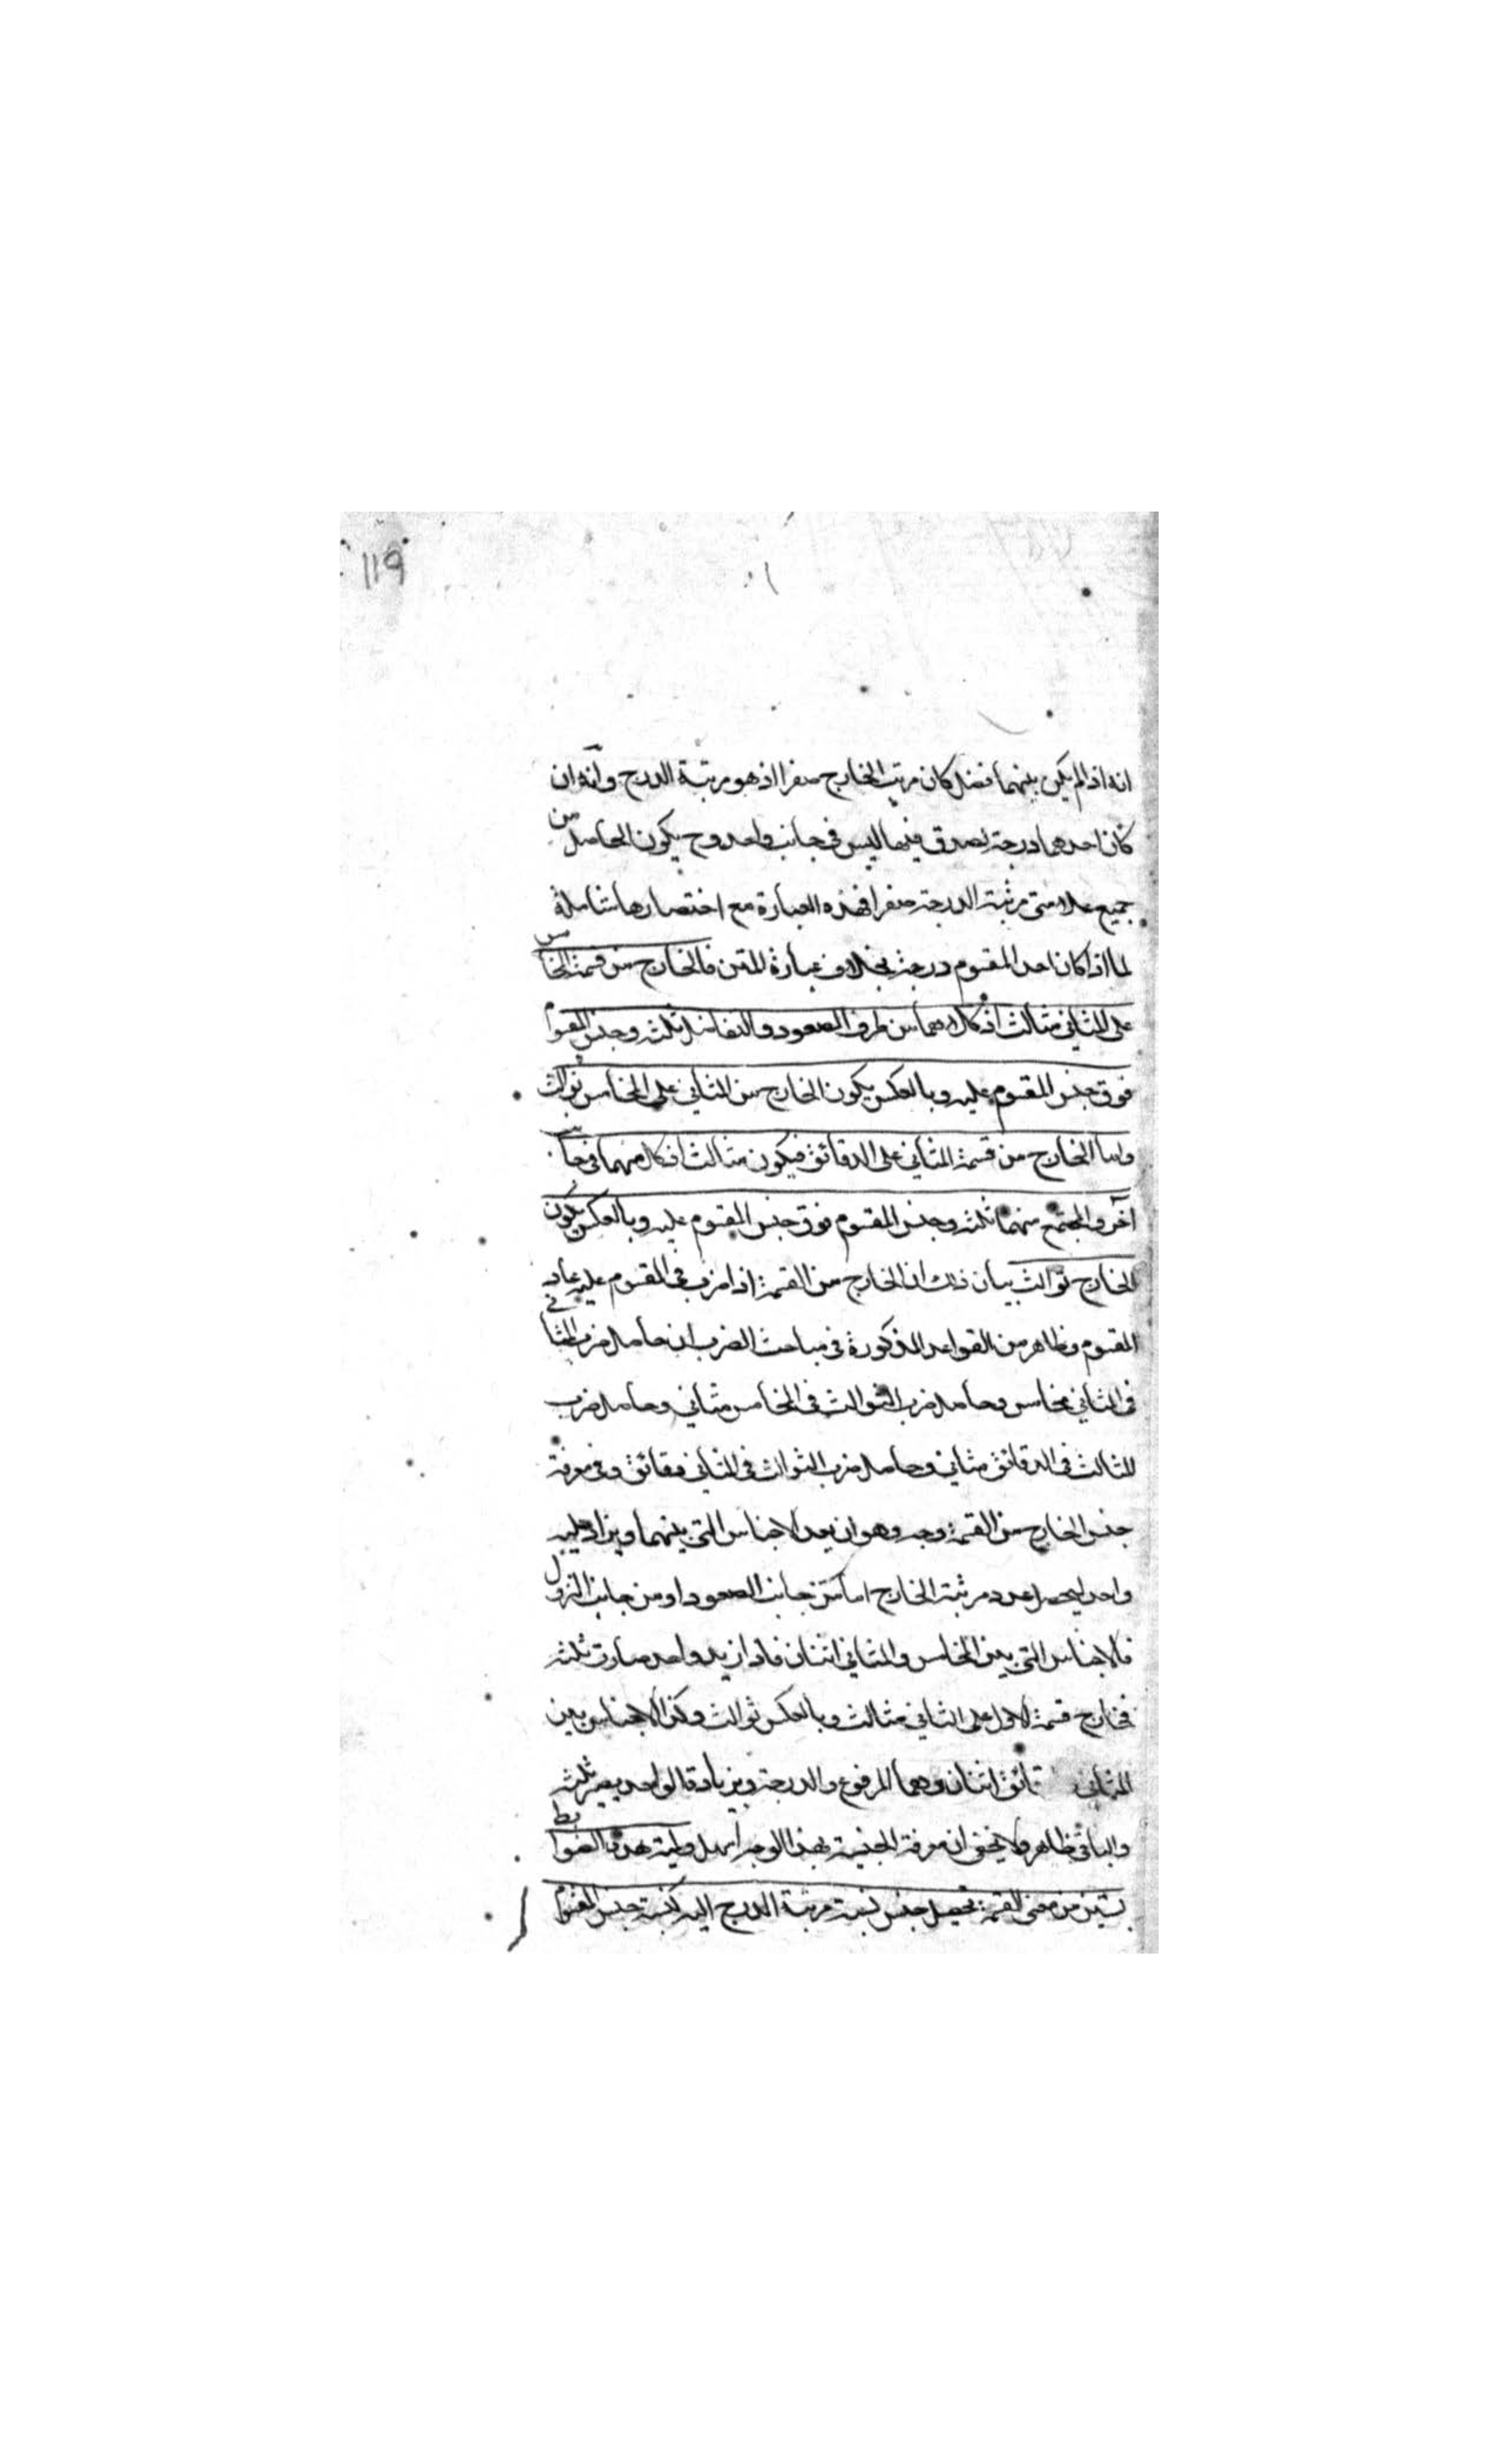 119
انه اذا لم يكن بينهما فضل كان مرتبة الخارج صفرا اذ هو مرتبة الدرج وانه ان
كان احدهما درجة يصدق فيهما ليس في جانب واحد وح يكون الحاصل من
جميع علامتى مرتبة الدرجة صفرا فهذه العبارة مع اختصارها شاملة
لما اذا كان احد المقسوم درجة بخلاف عبارة المتن فالخارج من قسمة الخامس
على المثانى مثالث اذ كلاهما من طرف الصعود والتفاضل ثلثه وجنس المقسوم
فوق جنس المقسوم عليه وبالعكس يكون الخارج من المثانى على المخامس ثوالث
واما الخارج من قسمة المثانى على الدقائق فيكون مثالث اذ كل منهما فى جانب
آخر والمجتمع منهما ثلثه وجنس المقسوم فوق جنس المقسوم عليه وبالعكس يكون
الخارج ثوالث بيان ذلك ان الخارج من القسمة اذا ضرب فى المقسوم عليه عاد
المقسوم وظاهر من القواعد المذكورة فى مباحث الضرب ان حاصل ضرب المثالث
فى المثانى مخامس وحاصل ضرب الثوالث فى المخامس مثانى وحاصل ضرب
المثالث فى الدقائق مثانى وحاصل ضرب الثوالث فى المثانى دقائق وفى معرفة
جنس الخارج من القسمة وجه وهو ان يعد الاجناس التى بينهما ويزاد عليه
واحد ليحصل عدد مرتبة الخارج اما من جانب الصعود او من جانب النزول
فالاجناس التى بين المخامس والمثانى اثنان فاذا زيد واحد صارت ثلثه
فخارج قسمة الاول على الثانى مثالث وبالعكس ثوالث وكذا الاجناس بين
المثانى قائق اثنان وهما المرفوع والدرجة وبزيادة الواحد يصير ثلثه
والباقى ظاهر ولا يخفى ان معرفة الجنسية بهذا الوجه اسهل ولمية هذه الضوابط
يستبين من معنى القسمة تحصيل جنس نسبة مرتبة الدرج اليه كنسبة جنس المقسوم